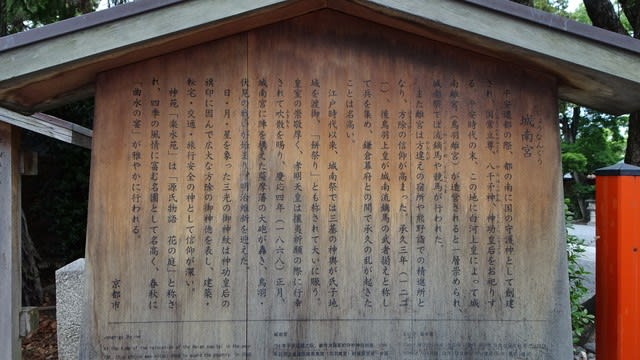 城南宮
じょうなんぐう
平安遷都の際、都の南に国の守護神として創建
され、国常立尊、八千矛神、神功皇后をお祀りす
る。平安時代の末、この地に白河上皇によって城
南離宮(鳥羽離宮)が造営されると一層崇められ、
城南祭では流鏑馬や競馬が行われた。
また離宮は方違えの宿所や熊野詣での精進所と
なり、方除の信仰が高まった。承久三年(一二二
一)、後鳥羽上皇が城南流鏑馬の武者揃えと称し
て兵を集め、鎌倉幕府との間で承久の乱が起きた
ことは名高い。
江戸時代以来、城南祭では三基の神輿が氏子地
域を渡御し、「餅祭り」とも称されて大いに賑う。
皇室の崇敬厚く、孝明天皇は攘夷祈願の際に行幸
されて吹散を賜り、慶応四年(一八六八)正月、
城南宮に陣を構えた薩摩藩の大砲が轟き、鳥羽・
伏見の戦いが始まり、明治維新を迎えた。
日・月・星を象った三光の御神紋は神功皇后の
旗印に因んで広大な方除の御神徳を表し、建築・
転宅・交通・旅行安全の神として信仰が深い。
神苑(楽水苑)は「源氏物語 花の庭」と称さ
れ、四季の風情に富む名園として名高く、春秋に
「曲水の宴」が雅やかに行われる。
京都市